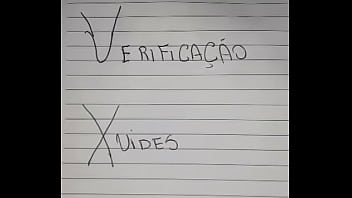 VERIFICAÇÃO
XVIDES